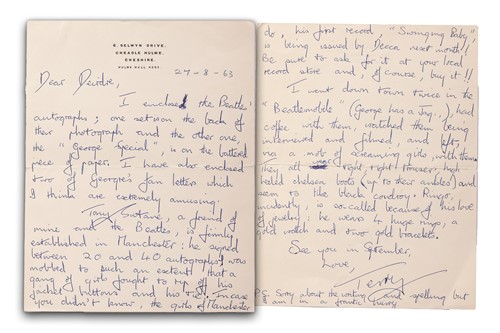 8. SELWYN DRIVE,
CHEADLE HULME,
CHESHIRE.
HULME HALL
27-8-63
Dear Deirdre,
I enclose the Beatles'
autographs; one set is on the back of
their photograph and the other one,
the "George Special", is on the battered
piece of paper. I have also enclosed
two of Georgie's fan letters which
I think are extremely amusing.
Tony Sutane, a friend of
mine and the Beatles, is firmly
established in Manchester: he signed
between 20 and 40 autographs, was
mobbed to such an extent that a
gang of girls fought to rip off his
jacket buttons and his tie. In case
you didn't know, the girls of Manchester
do, his first record, "Swinging Baby",
is being issued by Decca next month!!
Be sure to ask for it at your local
record store and, of course, buy it!!
I went down town twice in the
"Beatlemobile" (George has a Jag...), had
coffee with them, watched them being
interviewed and filmed, and left,
via a mob of screaming girls, with them.
They all wear right, right trousers, high
heeled chelsea boots (up to their ankles) and
seem to like black corduroy. Ringo,
incidently, is so-called because of his love
of jewelry: he wears 4 huge rings, a
gold watch and two gold bracelets.
See you in September,
Love,
Terry
P.S. Sorry about the writing and spelling but
I am in a frantic hurry